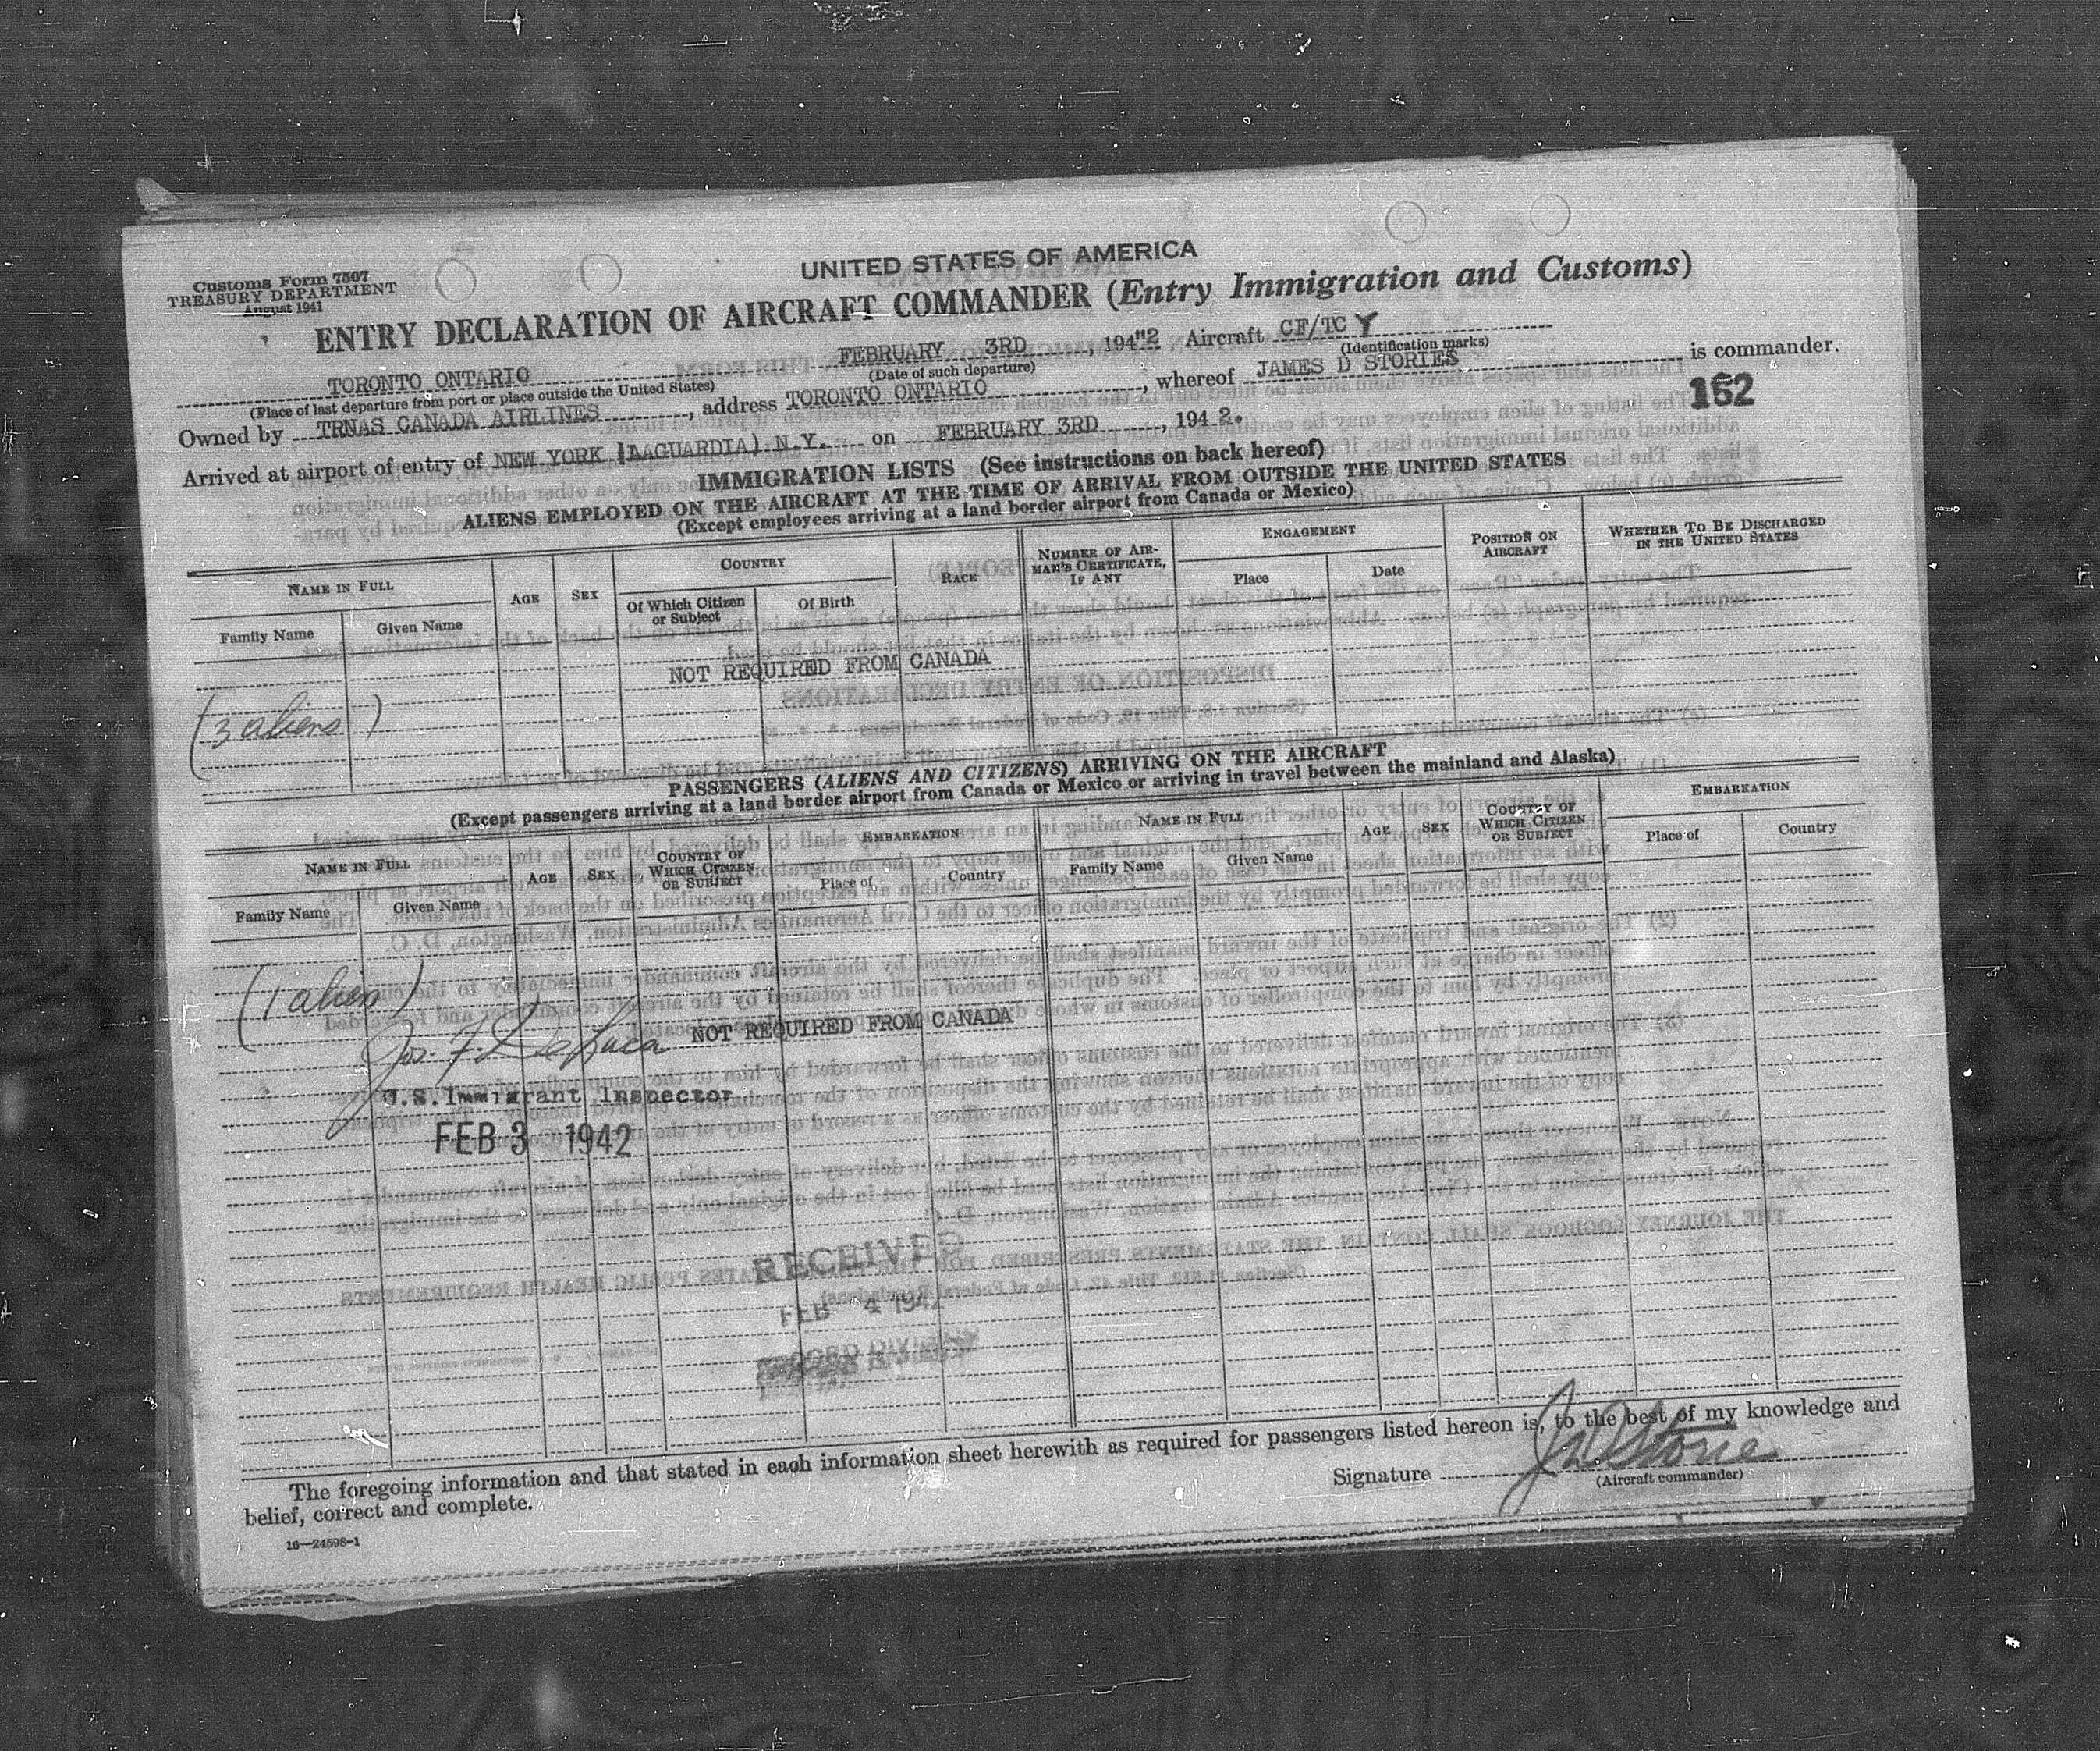 Customs Form 7507
TREASURY DEPARTMENT
August 1941
UNITED STATES OF AMERICA
ENTRY DECLARATION OF AIRCRAFT COMMANDER (Entry Immigration and Customs)
TORONTO ONTARIO FEBRUARY 3RD, 194"2 Aircraft CF/TC Y
(Place of last departure from port or place outside the United States) (Date of such departure) (Identification marks)
Owned by TRNAS CANADA AIRLINES, address TORONTO ONTARIO, whereof JAMES D STORIES is commander.
162
Arrived at airport of entry of NEW YORK (LAGUARDIA) N.Y. on FEBRUARY 3RD, 194 2.
IMMIGRATION LISTS (See instructions on back hereof)
ALIENS EMPLOYED ON THE AIRCRAFT AT THE TIME OF ARRIVAL FROM OUTSIDE THE UNITED STATES
(Except employees arriving at a land border airport from Canada or Mexico)
NAME IN FULL AGE SEX COUNTRY RACE NUMBER OF AIRMAN'S CERTIFICATE, IF ANY ENGAGEMENT POSITION ON AIRCRAFT WHETHER TO BE DISCHARGED IN THE UNITED STATES
Family Name Given Name Of Which Citizen or Subject Of Birth Place Date
NOT REQUIRED FROM CANADA
(3 aliens)
PASSENGERS (ALIENS AND CITIZENS) ARRIVING ON THE AIRCRAFT
(Except passengers arriving at a land border airport from Canada or Mexico or arriving in travel between the mainland and Alaska)
NAME IN FULL AGE SEX COUNTRY OF WHICH CITIZEN OR SUBJECT EMBARKATION NAME IN FULL AGE SEX COUNTRY OF WHICH CITIZEN OR SUBJECT EMBARKATION
Family Name Given Name Place of Country Family Name Given Name Place of Country
(1 alien)
Jos. F. DeLuca NOT REQUIRED FROM CANADA
U.S. Immigrant Inspector
FEB 3 1942
RECEIVED
FEB 4 1942
RECORD DIVISION
The foregoing information and that stated in each information sheet herewith as required for passengers listed hereon is, to the best of my knowledge and
belief, correct and complete.
Signature J D Storie
(Aircraft commander)
16—24598-1